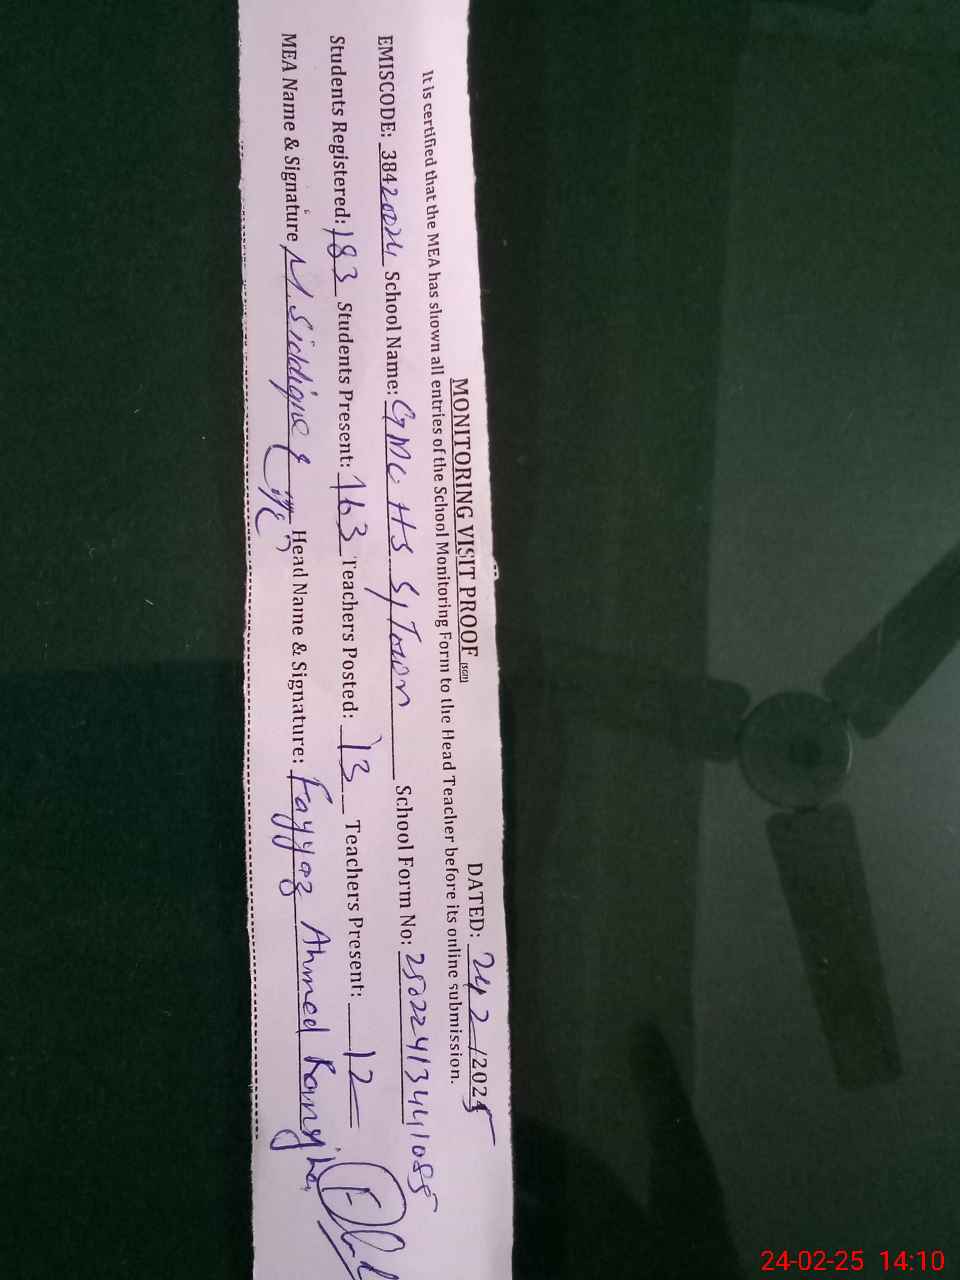 MONITORING VISIT PROOF DATED: 24/2/2025
It is certified that the MEA has shown all entries of the School Monitoring Form to the Head Teacher before its online submission.
EMISCODE: 38420024 School Name: GMC HS S/Town School Form No:
Students Registered: 183 Students Present: 163 Teachers Posted: 13 Teachers Present: 12
MEA Name & Signature M. Siddique Head Name & Signature: Fayyaz Ahmed
24-02-25 14:10